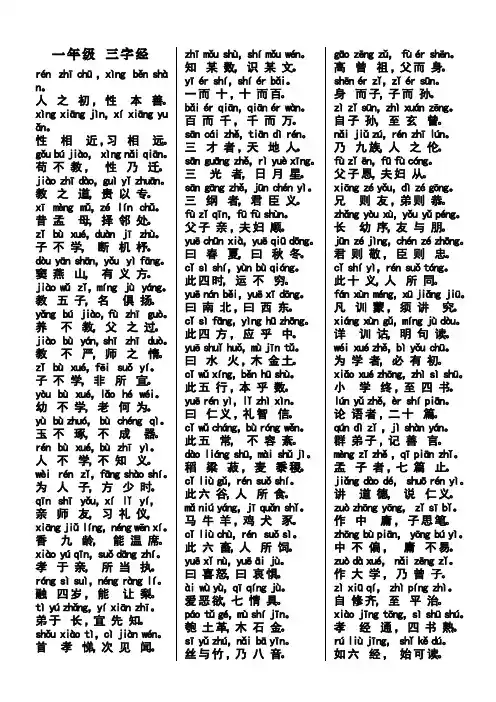 一年级 三字经
rén zhī chū , xìng běn shà
n。
人 之 初，性 本 善。
xìng xiāng jìn, xí xiāng yu
ǎn。
性 相 近,习 相 远。
gǒu bú jiào, xìng nǎi qiān。
苟 不 教， 性 乃 迁。
jiào zhī dào, guì yǐ zhuān。
教 之 道, 贵 以 专。
xī mèng mǔ, zé lín chǔ。
昔 孟 母, 择 邻 处。
zǐ bù xué, duàn jī zhù。
子 不 学, 断 机 杼。
dòu yān shān, yǒu yì fāng。
窦 燕 山, 有 义 方。
jiào wǔ zǐ, míng jù yáng。
教 五 子, 名 俱 扬。
yǎng bú jiào, fù zhī guò。
养 不 教, 父 之 过。
jiào bù yán, shī zhī duò。
教 不 严, 师 之 惰。
zǐ bù xué, fēi suǒ yí。
子 不 学, 非 所 宜。
yòu bù xué, lǎo hé wéi。
幼 不 学, 老 何 为。
yù bù zhuó, bù chéng qì。
玉 不 琢, 不 成 器。
rén bù xué, bù zhī yì。
人 不 学,不 知 义。
wèi rén zǐ, fāng shào shí。
为 人 子, 方 少 时。
qīn shī yǒu, xí lǐ yí,
亲 师 友, 习 礼 仪。
xiāng jiǔ líng, néng wēn xí。
香 九 龄, 能 温 席。
xiào yú qīn, suǒ dāng zhí。
孝 于 亲, 所 当 执。
róng sì suì, néng ràng lí。
融 四 岁, 能 让 梨。
tì yú zhǎng, yí xiān zhī。
弟于 长, 宜 先 知。
shǒu xiào tì, cì jiàn wén。
首 孝 悌,次 见 闻。
zhī mǒu shù, shí mǒu wén。
知 某 数, 识 某 文。
yī ér shí, shí ér bǎi。
一 而 十, 十 而 百。
bǎi ér qiān, qiān ér wàn。
百 而 千, 千 而 万。
sān cái zhě, tiān dì rén。
三 才 者, 天 地 人。
sān guāng zhě, rì yuè xīng。
三 光 者, 日 月 星。
sān gāng zhě, jūn chén yì。
三 纲 者, 君 臣 义。
fù zǐ qīn, fū fù shùn。
父 子 亲, 夫 妇 顺。
yuē chūn xià, yuē qiū dōng。
曰 春 夏, 曰 秋 冬。
cǐ sì shí, yùn bù qióng。
此 四 时, 运 不 穷。
yuē nán běi, yuē xī dōng。
曰 南 北, 曰 西 东。
cǐ sì fāng, yìng hū zhōng。
此 四 方, 应 乎 中。
yuē shuǐ huǒ, mù jīn tǔ。
曰 水 火, 木 金 土。
cǐ wǔ xíng, běn hū shù。
此 五 行, 本 乎 数。
yuē rén yì, lǐ zhì xìn。
曰 仁义, 礼 智 信。
cǐ wǔ cháng, bù róng wěn。
此 五 常, 不 容 紊。
dào liáng shū, mài shǔ jì。
稻 梁 菽, 麦 黍稷。
cǐ liù gǔ, rén suǒ shí。
此 六 谷, 人 所 食。
mǎ niú yáng, jī quǎn shǐ。
马 牛 羊, 鸡 犬 豕。
cǐ liù chù, rén suǒ sì。
此 六 畜, 人 所 饲。
yuē xǐ nù, yuē āi jù。
曰 喜 怒, 曰 哀 惧。
ài wù yù, qī qíng jù。
爱 恶 欲, 七 情 具。
páo tǔ gé, mù shí jīn。
匏 土 革, 木 石 金。
sī yǔ zhú, nǎi bā yīn。
丝 与 竹, 乃 八 音。
gāo zēng zǔ, fù ér shēn。
高 曾 祖, 父 而 身。
shēn ér zǐ, zǐ ér sūn。
身 而 子, 子 而 孙。
zì zǐ sūn, zhì xuán zēng。
自 子 孙, 至 玄 曾。
nǎi jiǔ zú, rén zhī lún。
乃 九族, 人 之 伦。
fù zǐ ēn, fū fù cóng。
父子 恩, 夫妇 从。
xiōng zé yǒu, dì zé gōng。
兄 则 友, 弟 则 恭。
zhǎng yòu xù, yǒu yǔ péng。
长 幼 序, 友 与 朋。
jūn zé jìng, chén zé zhōng。
君 则 敬, 臣 则 忠。
cǐ shí yì, rén suǒ tóng。
此 十 义, 人 所 同。
fán xùn méng, xū jiǎng jiū。
凡 训 蒙, 须 讲 究。
xiáng xùn gǔ, míng jù dòu。
详 训 诂, 明 句 读。
wéi xué zhě, bì yǒu chū。
为 学 者, 必 有 初。
xiǎo xué zhōng, zhì sì shū。
小 学 终, 至 四 书。
lún yǔ zhě, èr shí piān。
论 语 者, 二 十 篇。
qún dì zǐ , jì shàn yán。
群 弟 子, 记 善 言。
mèng zǐ zhě , qī piān zhǐ。
孟 子 者, 七 篇 止。
jiǎng dào dé, shuō rén yì。
讲 道 德, 说 仁义。
zuò zhōng yōng, zǐ sī bǐ。
作 中 庸, 子思 笔。
zhōng bù piān, yōng bú yì。
中 不 偏, 庸 不 易。
zuò dà xué, nǎi zēng zǐ。
作 大 学, 乃 曾 子。
zì xiū qí, zhì píng zhì。
自 修 齐, 至 平 治。
xiào jīng tōng, sì shū shú。
孝 经 通, 四 书 熟。
rú liù jīng, shǐ kě dú。
如 六 经, 始 可 读。